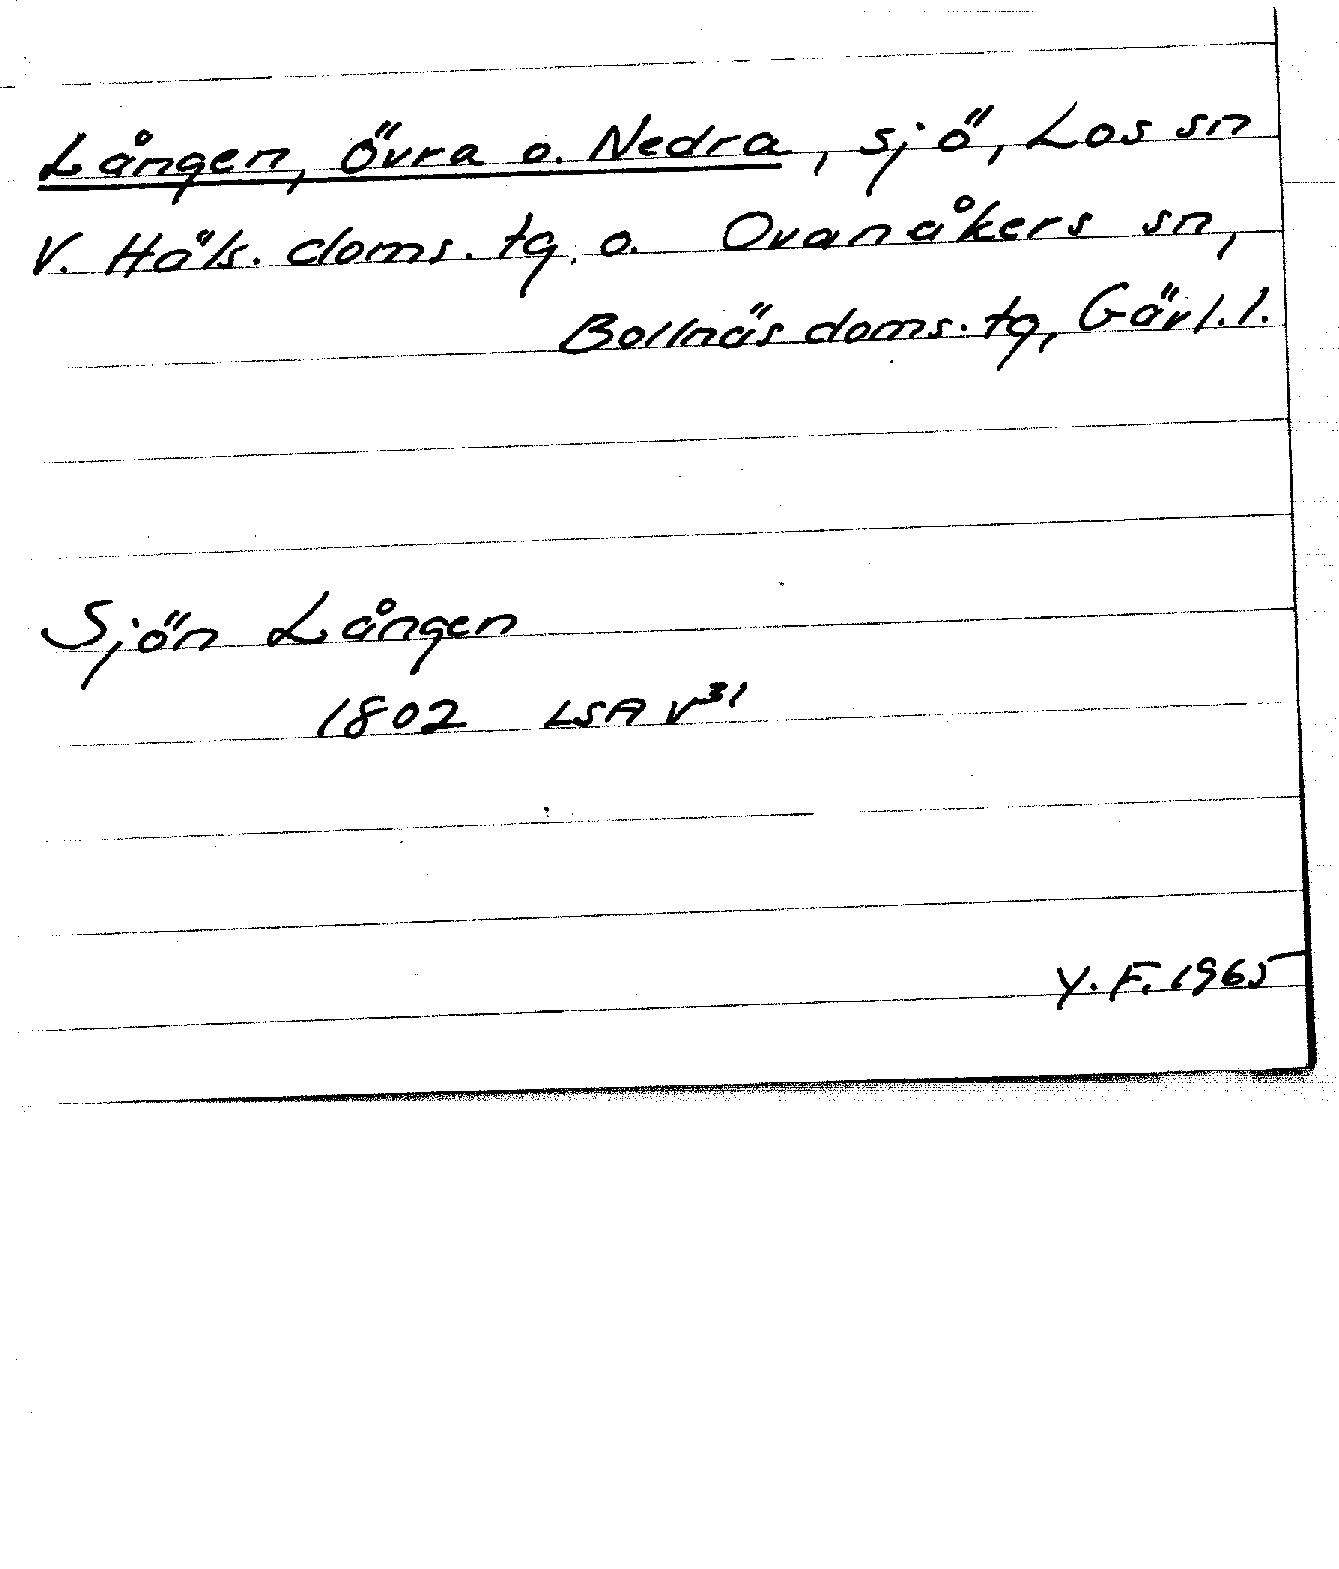 Lången, Övra o. Nedra, sjö, Los sn
V. Häls. doms. tg. o. Ovanåkers sn,
Bollnäs doms. tg, Gävl. l.
Sjön Lången
1802 LSA V³¹
Y. F. 1965